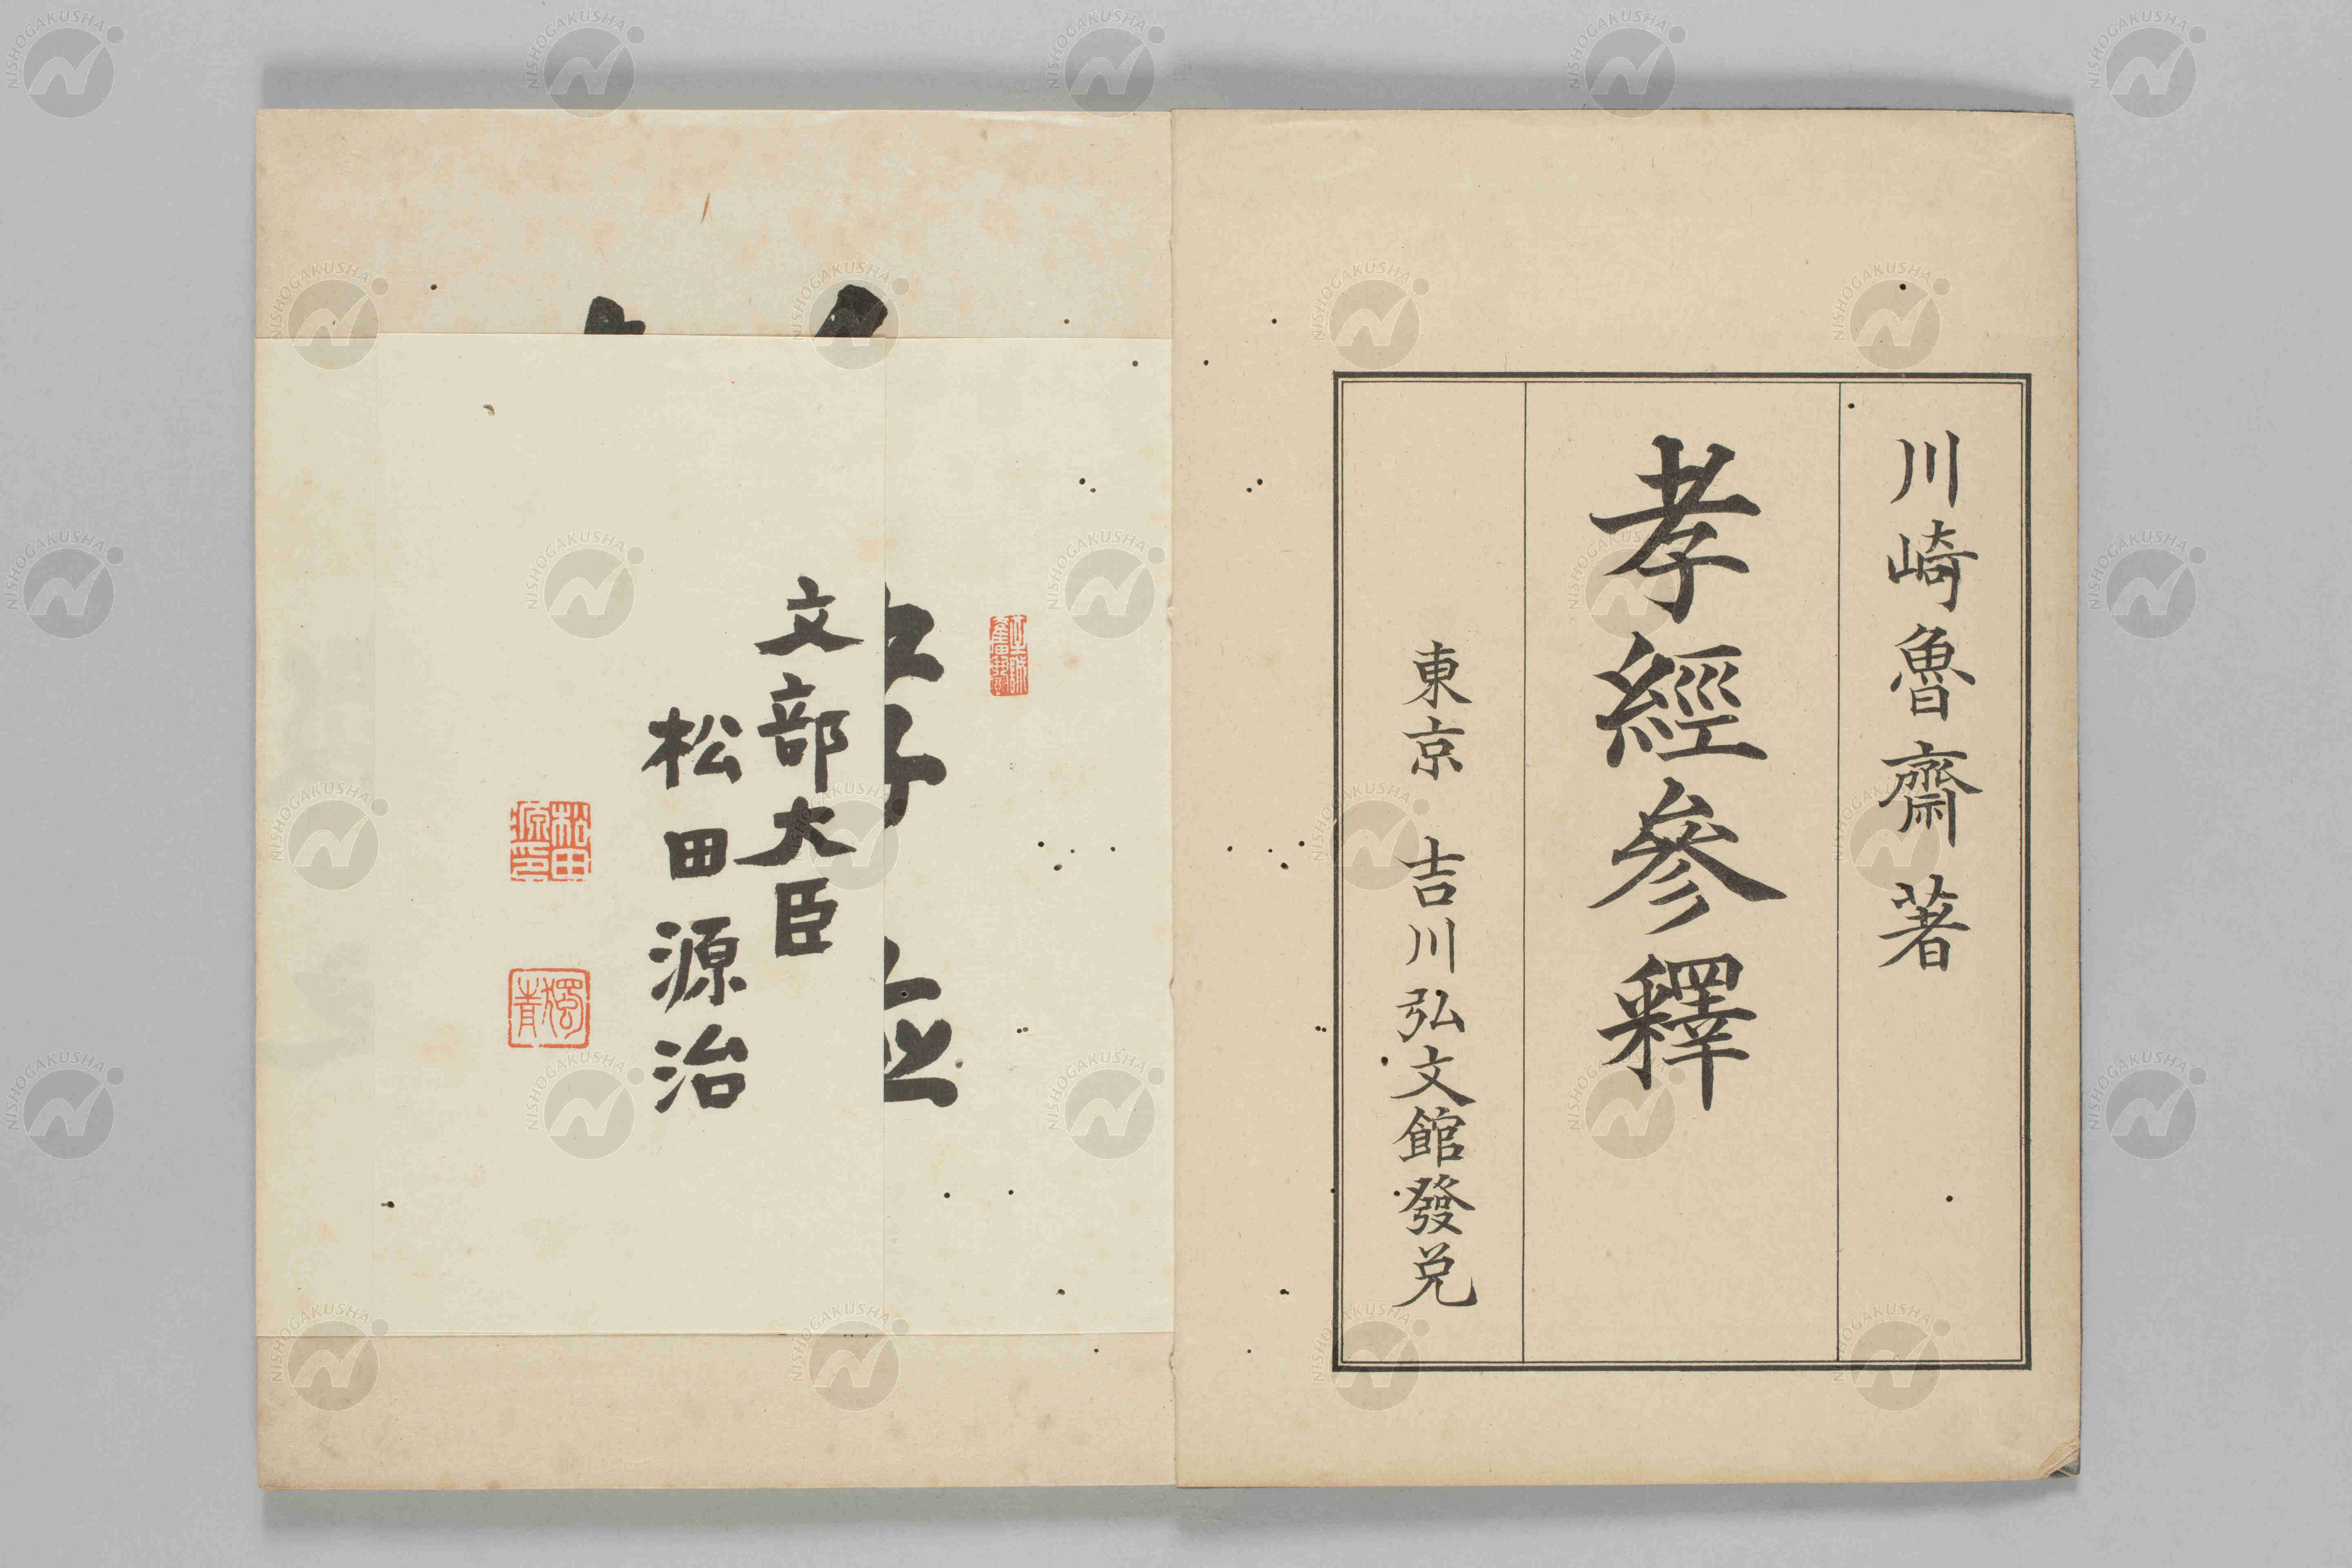 川崎魯齋著
孝經參釋
東京 吉川弘文館發兌
文部大臣
松田源治
松田
源印
獨青
NISHOGAKUSHA